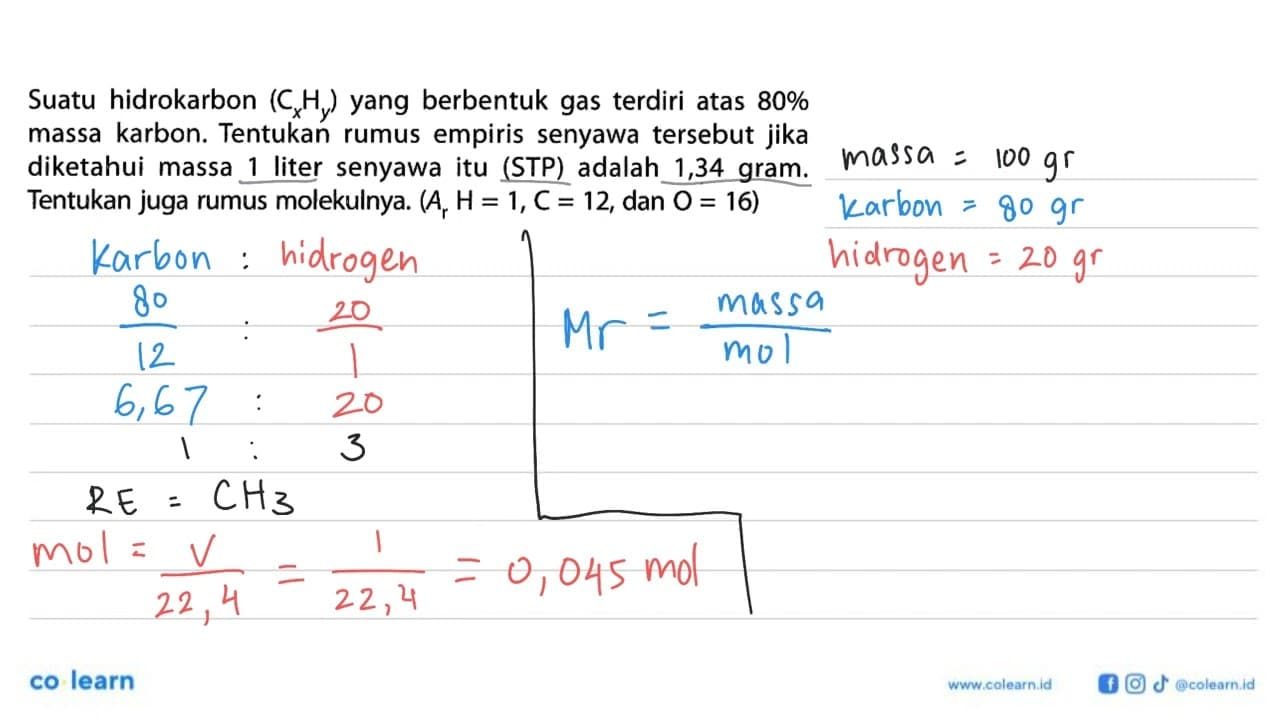 Suatu hidrokarbon (CxHy) yang berbentuk gas terdiri atas 80%
massa karbon. Tentukan rumus empiris senyawa tersebut jika
diketahui massa 1 liter senyawa itu (STP) adalah 1,34 gram.
Tentukan juga rumus molekulnya. (Ar H = 1, C = 12, dan O = 16)
massa = 100 gr
karbon = 80 gr
hidrogen = 20 gr
karbon : hidrogen
80/12 : 20/1
6,67 : 20
1 : 3
RE = CH3
mol = V/22,4 = 1/22,4 = 0,045 mol
Mr = massa/mol
co learn
www.colearn.id
@colearn.id